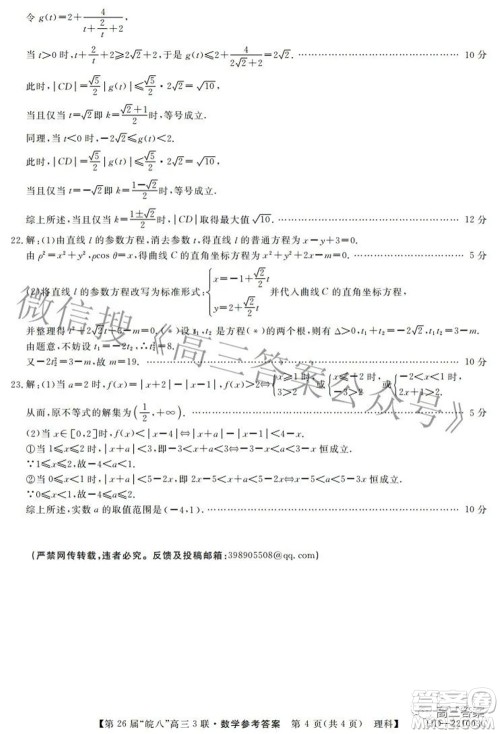 令 g(t)=2+4/(t+2/t+2),
当 t>0 时,t+2/t+2⩾2√2+2,于是 g(t)⩽2+4/(2√2+2)=2√2. 10 分
此时,|CD|=√5/2|g(t)|⩽√5/2·2√2=√10,
当且仅当 t=√2即 k=(√2+1)/2时,等号成立.
同理,当 t<0 时,-2√2⩽g(t)<2.
此时,|CD|=√5/2|g(t)|⩽√5/2·2√2=√10,
当且仅当 t=-√2即 k=(1-√2)/2时,等号成立.
综上所述,当且仅当 k=(1±√2)/2时,|CD|取得最大值 √10. 12 分
22.解:(1)由直线 l 的参数方程,消去参数 t,得直线 l 的普通方程为 x-y+3=0.
由 ρ²=x²+y²,ρcos θ=x,得曲线 C 的直角坐标方程为 5 分
(2)将直线 l 的参数方程改写为标准形式:{x=-1+√2/2 y=2+√2/2 并代入曲线 C 的直角坐标方程,
并整理得 设 t₁,t₂是方程(*)的两个根,则有 Δ>0,t₁t₂=3-m.
由题意,不妨设
又-2t₂²=3-m,故 m=19. 10 分
23.解:(1)当 a=2 时,f(x)=|x+2|-|x-1|,f(x)>2⇔
从而,原不等式的解集为(1/2,+∞). 5 分
(2)当 x∈[0,2]时,f(x)<|x-4|⇔|x+a|-|x-1|<|x-4|.
①当 1⩽x⩽2 时,|x+a|<3⇔-3-x<a<3-x 恒成立.
∵1⩽x⩽2,故-4<a<1.
②当 0⩽x⩽1 时,|x+a|<5-2x⇔x-5<a<5-3x 恒成立.
∵0⩽x⩽1,故-4<a<2.
综上所述,实数 a 的取值范围是(-4,1). 10 分
(严禁网传转载,违者必究。反馈及投稿邮箱:398905508@qq.com)
微信搜《高三答案公众号》
【第 26 届“皖八”高三 3 联·数学参考答案 第 4 页(共 4 页) 理科】
高三答案